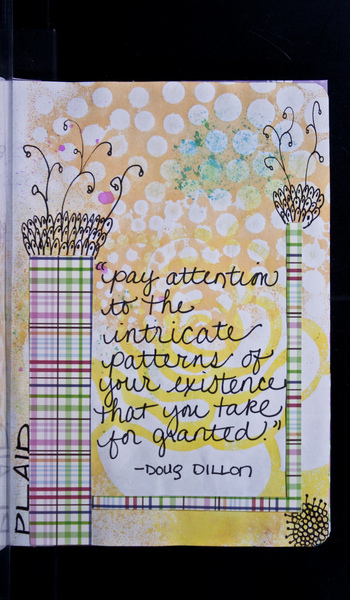 "pay attention
to the
intricate
patterns of
your existence
that you take
for granted."
-Doug Dillon
PLAID